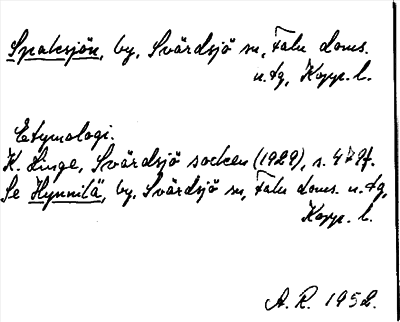 Spaksjön, by, Svärdsjö sn, Falu doms.
n. tg, Kopp. l.
Etymologi.
K. Linge, Svärdsjö socken (1929), s. 
Se Hynnilä, by, Svärdsjö sn, Falu doms. n. tg,
Kopp. l.
A. R. 1952.